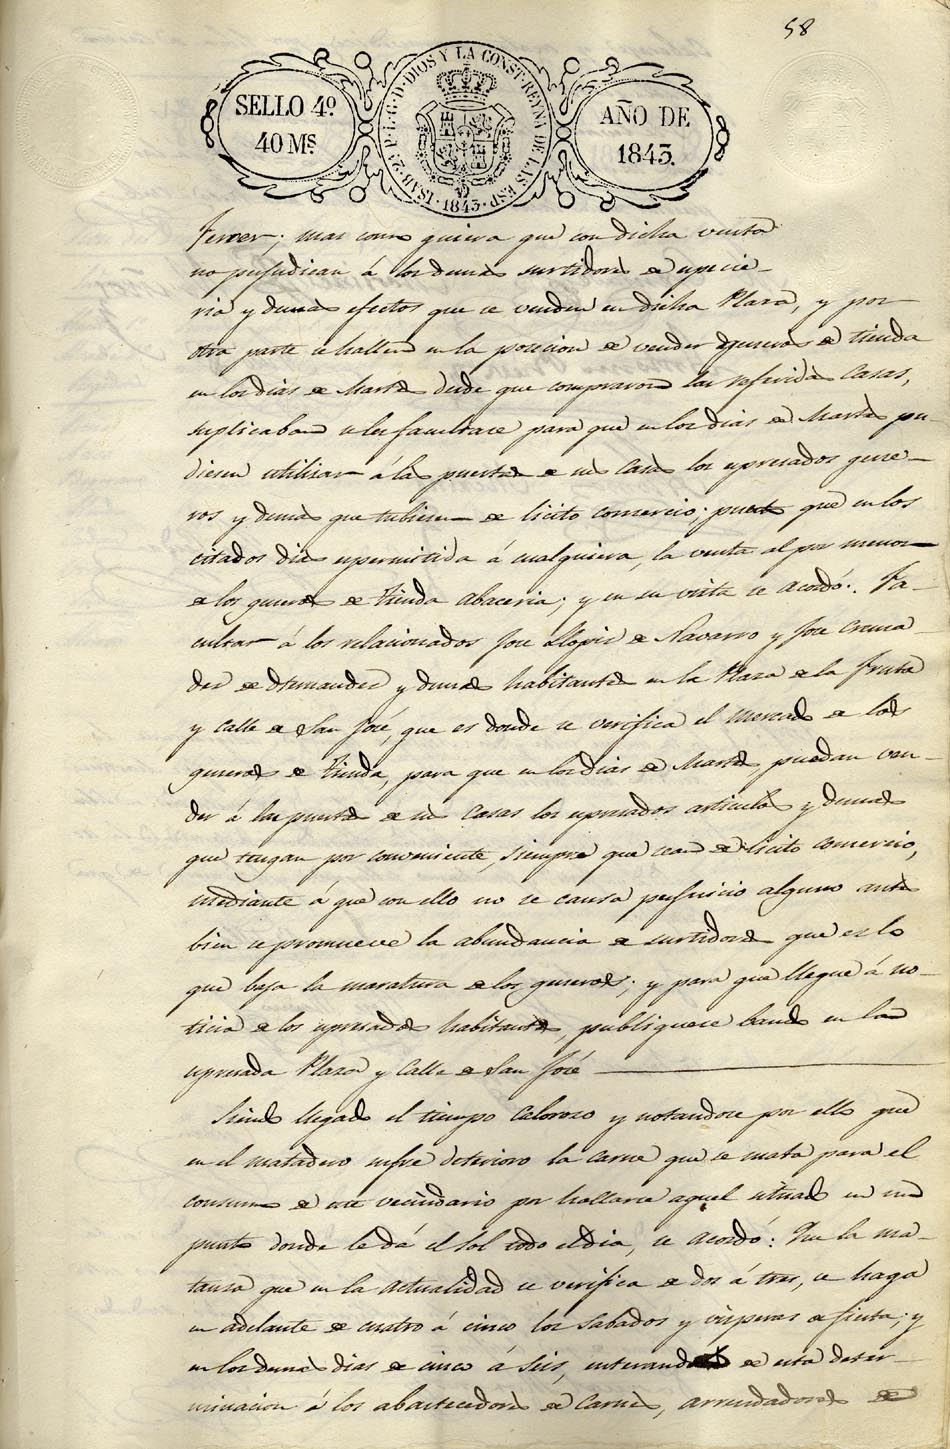 58
SELLO 4º
40 Ms.
ISAB. 2ª P. L. G. D. DIOS Y LA CONST. REYNA DE LAS ESP. 1843
AÑO DE
1843.
ferver; mas como quiera que con dicha venta
no perjudican á los demas surtidores de especie-
ria y demas efectos que se venden en dicha Plaza, y por
otra parte se hallen en la posecion de vender generos de tienda
en los dias de Martes desde que compraron las referidas Casas,
suplicaban se les facultace para que en los dias de Martes pu-
diesen utilizar á las puertas de sus casas los epresados gene-
ros y demas que tubiesen de licito comercio; puesto que en los
citados dias es permitida á cualquiera, la venta al por menor
de los generos de tienda abaceria; y en su vista se acordó: Fa-
cultar á los relacionados Jose Llopis de Navarro y Jose Crema-
des de Fernandes y demas habitantes en la Plaza de la Fruta
y calle de San José, que es donde se verifica el mercado de los
generos de tienda, para que en los dias de Martes, puedan ven-
der á las puertas de sus casas los epresados articulos y demas
que tengan por conveniente, siempre que sean de licito comercio,
mediante á que con ello no se causa perjuicio alguno antes
bien se promueve la abundancia de surtidores que es lo
que baja la maratura de los generos; y para que llegue á no-
ticia de los epresados habitantes, publiquese bando en la
epresada Plaza y Calle de San José
Siendo llegado el tiempo caloroso y notandose por ello que
en el matadero sufre deterioro la carne que se mata para el
consumo de este vecindario por hallarse aquel situado en un
punto donde le dá el Sol todo el dia, se acordó: Que la ma-
tansa que en la actualidad se verifica de dos á tres, se haga
en adelante de cuatro á cinco los Sabados y visperas de fiesta; y
en los demas dias de cinco á seis, enterando de esta deter-
minacion á los abastecedores de Carnes, arrendadores de